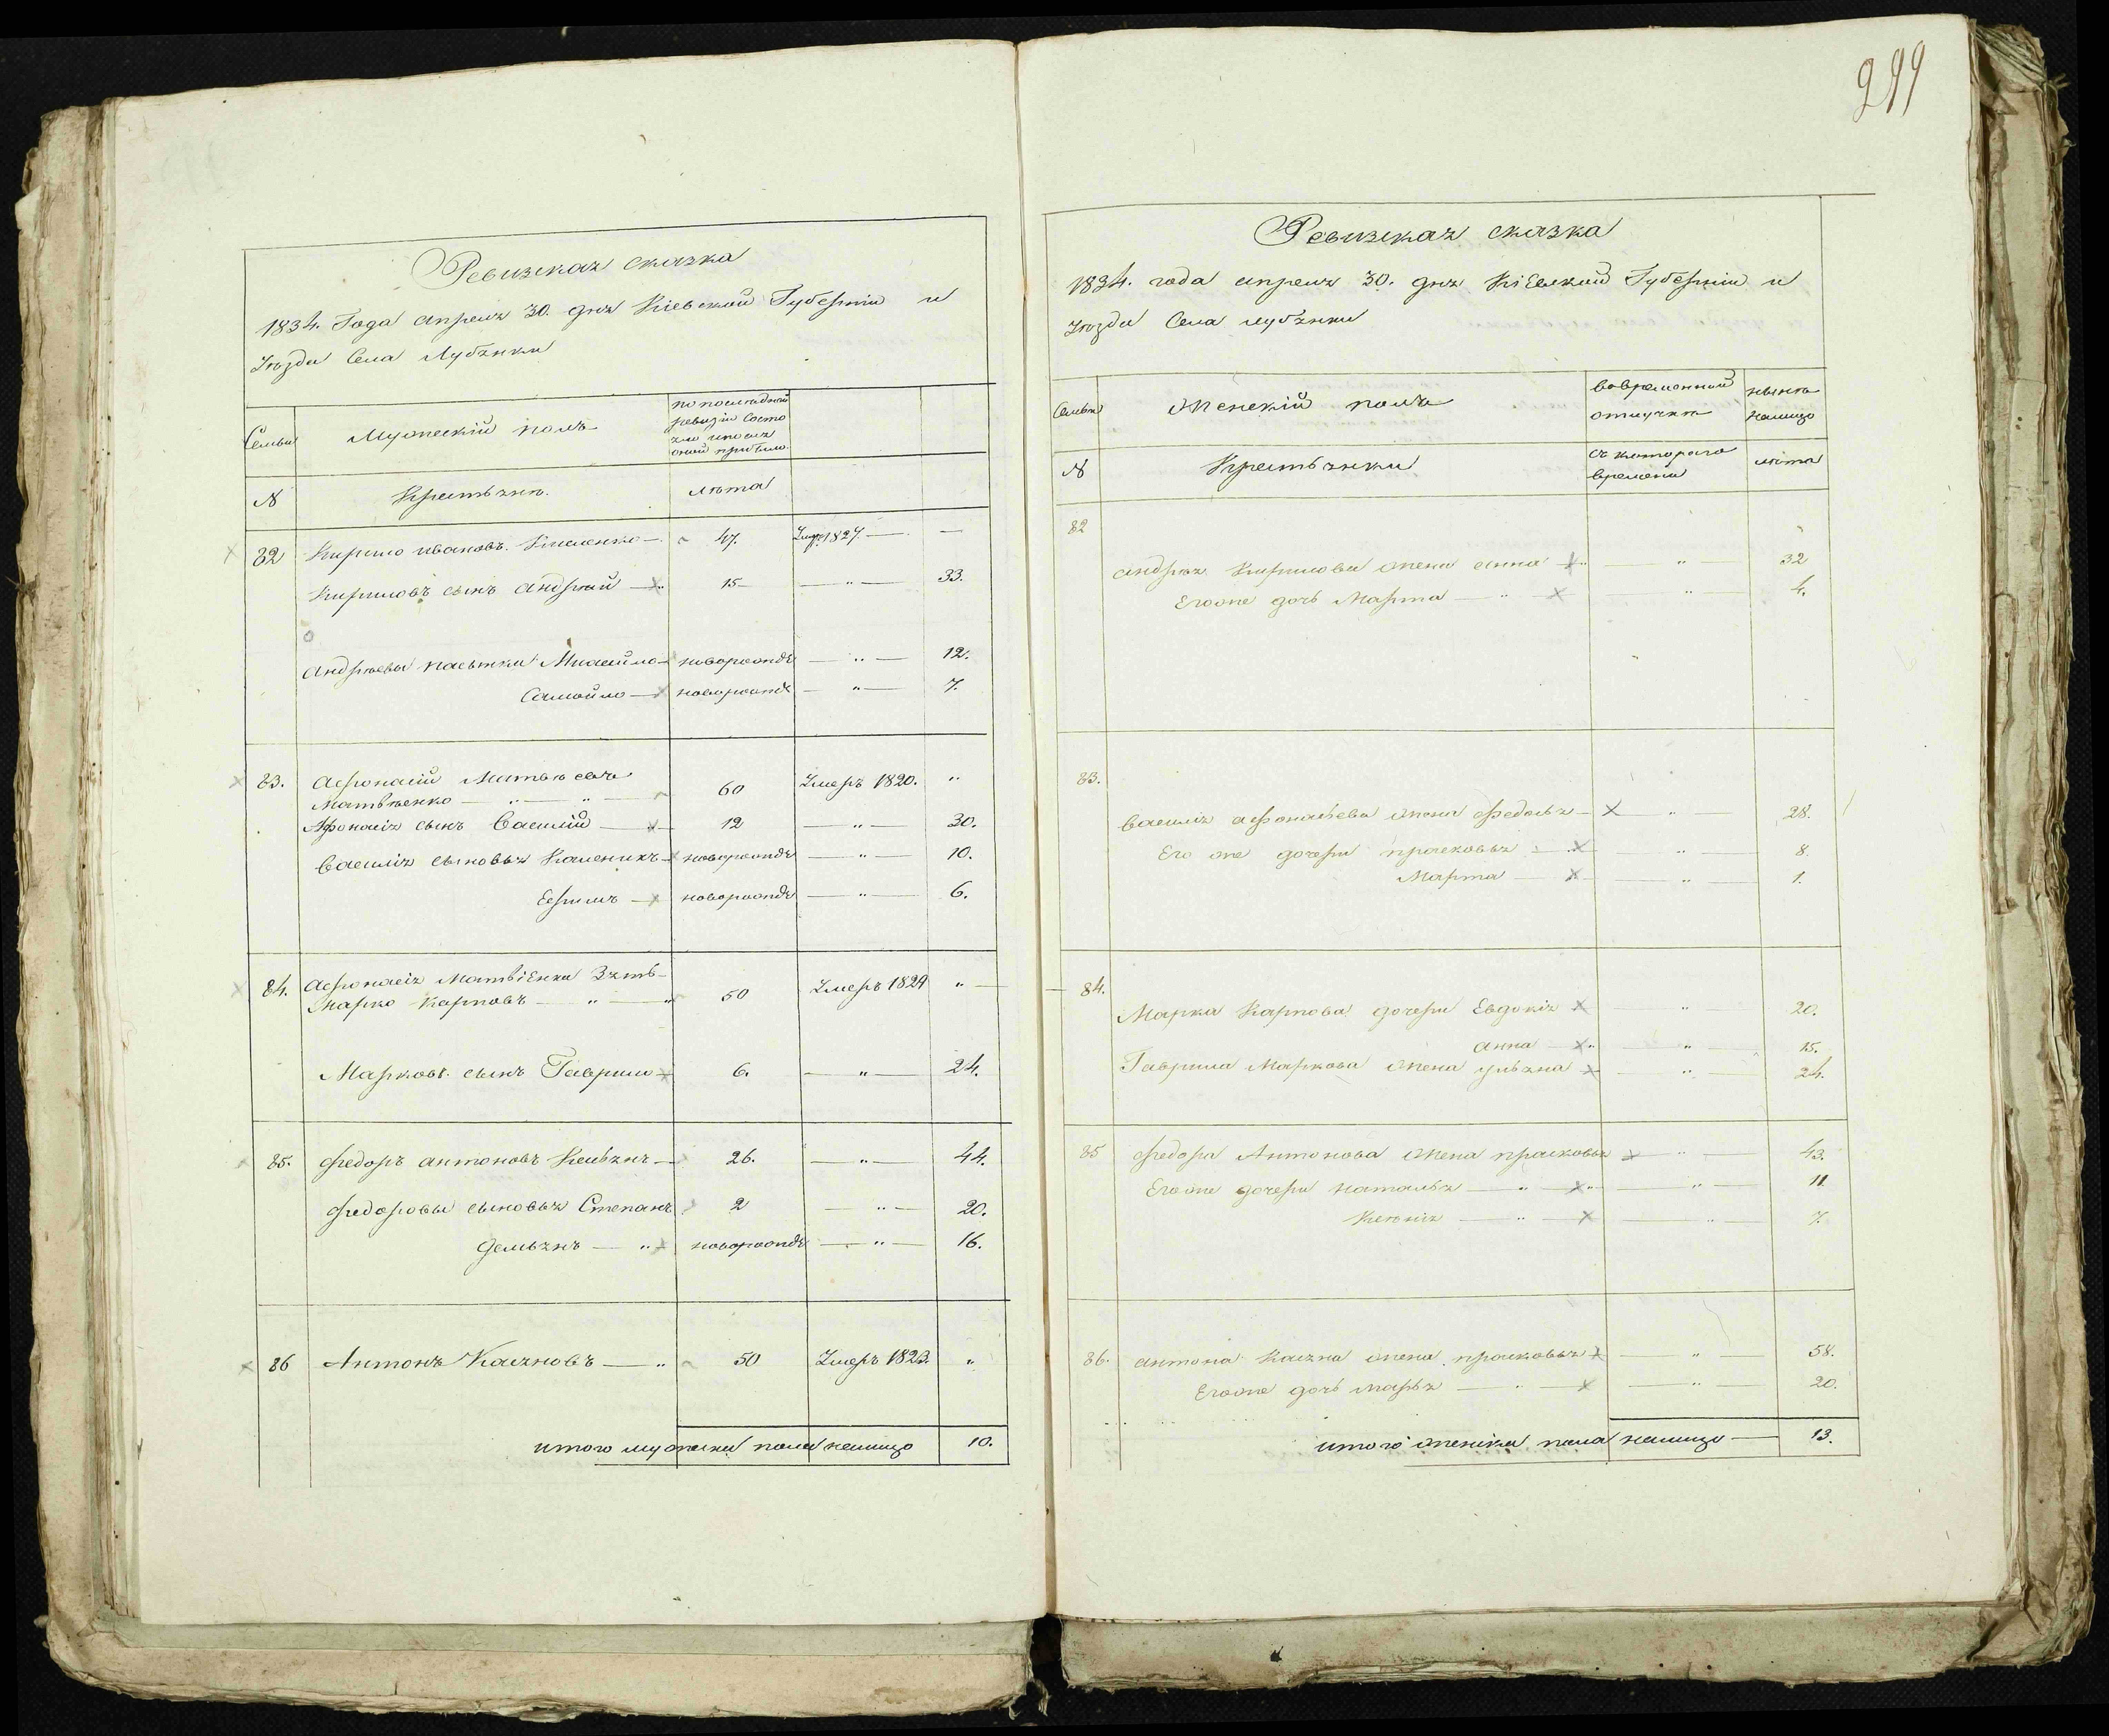 299
Ревизская сказка
1834. Года апреля 30. дня Кіевской Губерніи и
Уѣзда Села Лубянки
Семьи
Мужескій полъ
по последней
ревизіи состо
яло и после
оной прибыло.
№
Крестьяне.
лѣта
82 Кирило Ивановъ 47. Умеръ 1827 —
Кириловъ сынъ Андрей 15 — " — 33.
Андреевы пасынки Михайло новорожде — " — 12.
Самойло новорожде — " — 7.
83. Афонасій Матвѣевъ
Матвѣенко — " — " — 60 Умеръ 1820. "
Афонасія сынъ Василій 12 — " — 30.
Василія сыновья Каленикъ новорожде — " — 10.
Ефимъ новорожде — " — 6.
84. Афонасія Матвіенка Зять
Марко Карповъ — " — " 50 Умеръ 1829 "
Марковъ сынъ Гаврило 6. — " — 24.
85. Федоръ Антоновъ 26. — " — 44.
Федоровы сыновья Степанъ 2 — " — 20.
Демьянъ — " новорожде — " — 16.
86 Антонъ Касяновъ — " 50 Умеръ 1823. "
итого мужеска пола налицо 10.
Ревизская сказка
1834. года апреля 30. дня Кіевской Губерніи и
Уѣзда Села Лубянки
Семьи
Женскій полъ
вовременной
отлучке
ныне
налицо
№
Крестьянки
съ котораго
времени
лѣта
82
Андрея Кирилова жена Анна " 32
Егоже дочь Марта — " — " 4.
83.
Василія Афонасьева жена Федосья — " — 28.
Его же дочери Прасковья — " — 8.
Марта — " — 1.
84.
Марка Карпова дочери Евдокія — " — 20.
Анна — " — 15.
Гаврила Маркова жена Ульяна — " — 24.
85 Федора Антонова жена Прасковья " — 43.
Егоже дочери Наталья — " — " — 11
Ксенія — " — " — 7.
86. Антона Касяна жена Прасковья — " — 58.
Егоже дочь Марья — " — " — 20.
итого женска пола налицо — 13.